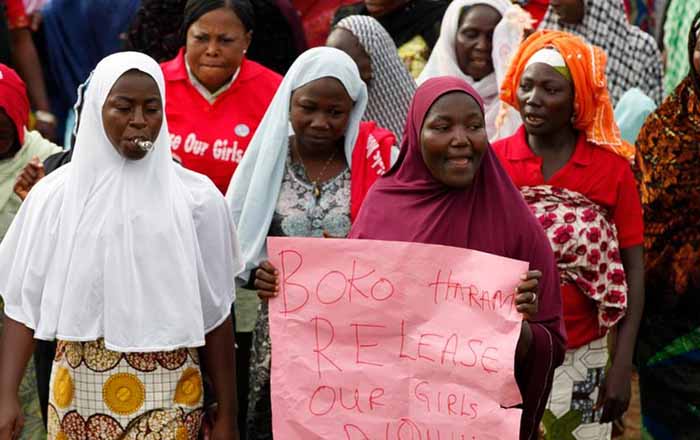 se Our Girls
BOKO HARAM
RELEASE
OUR GIRLS